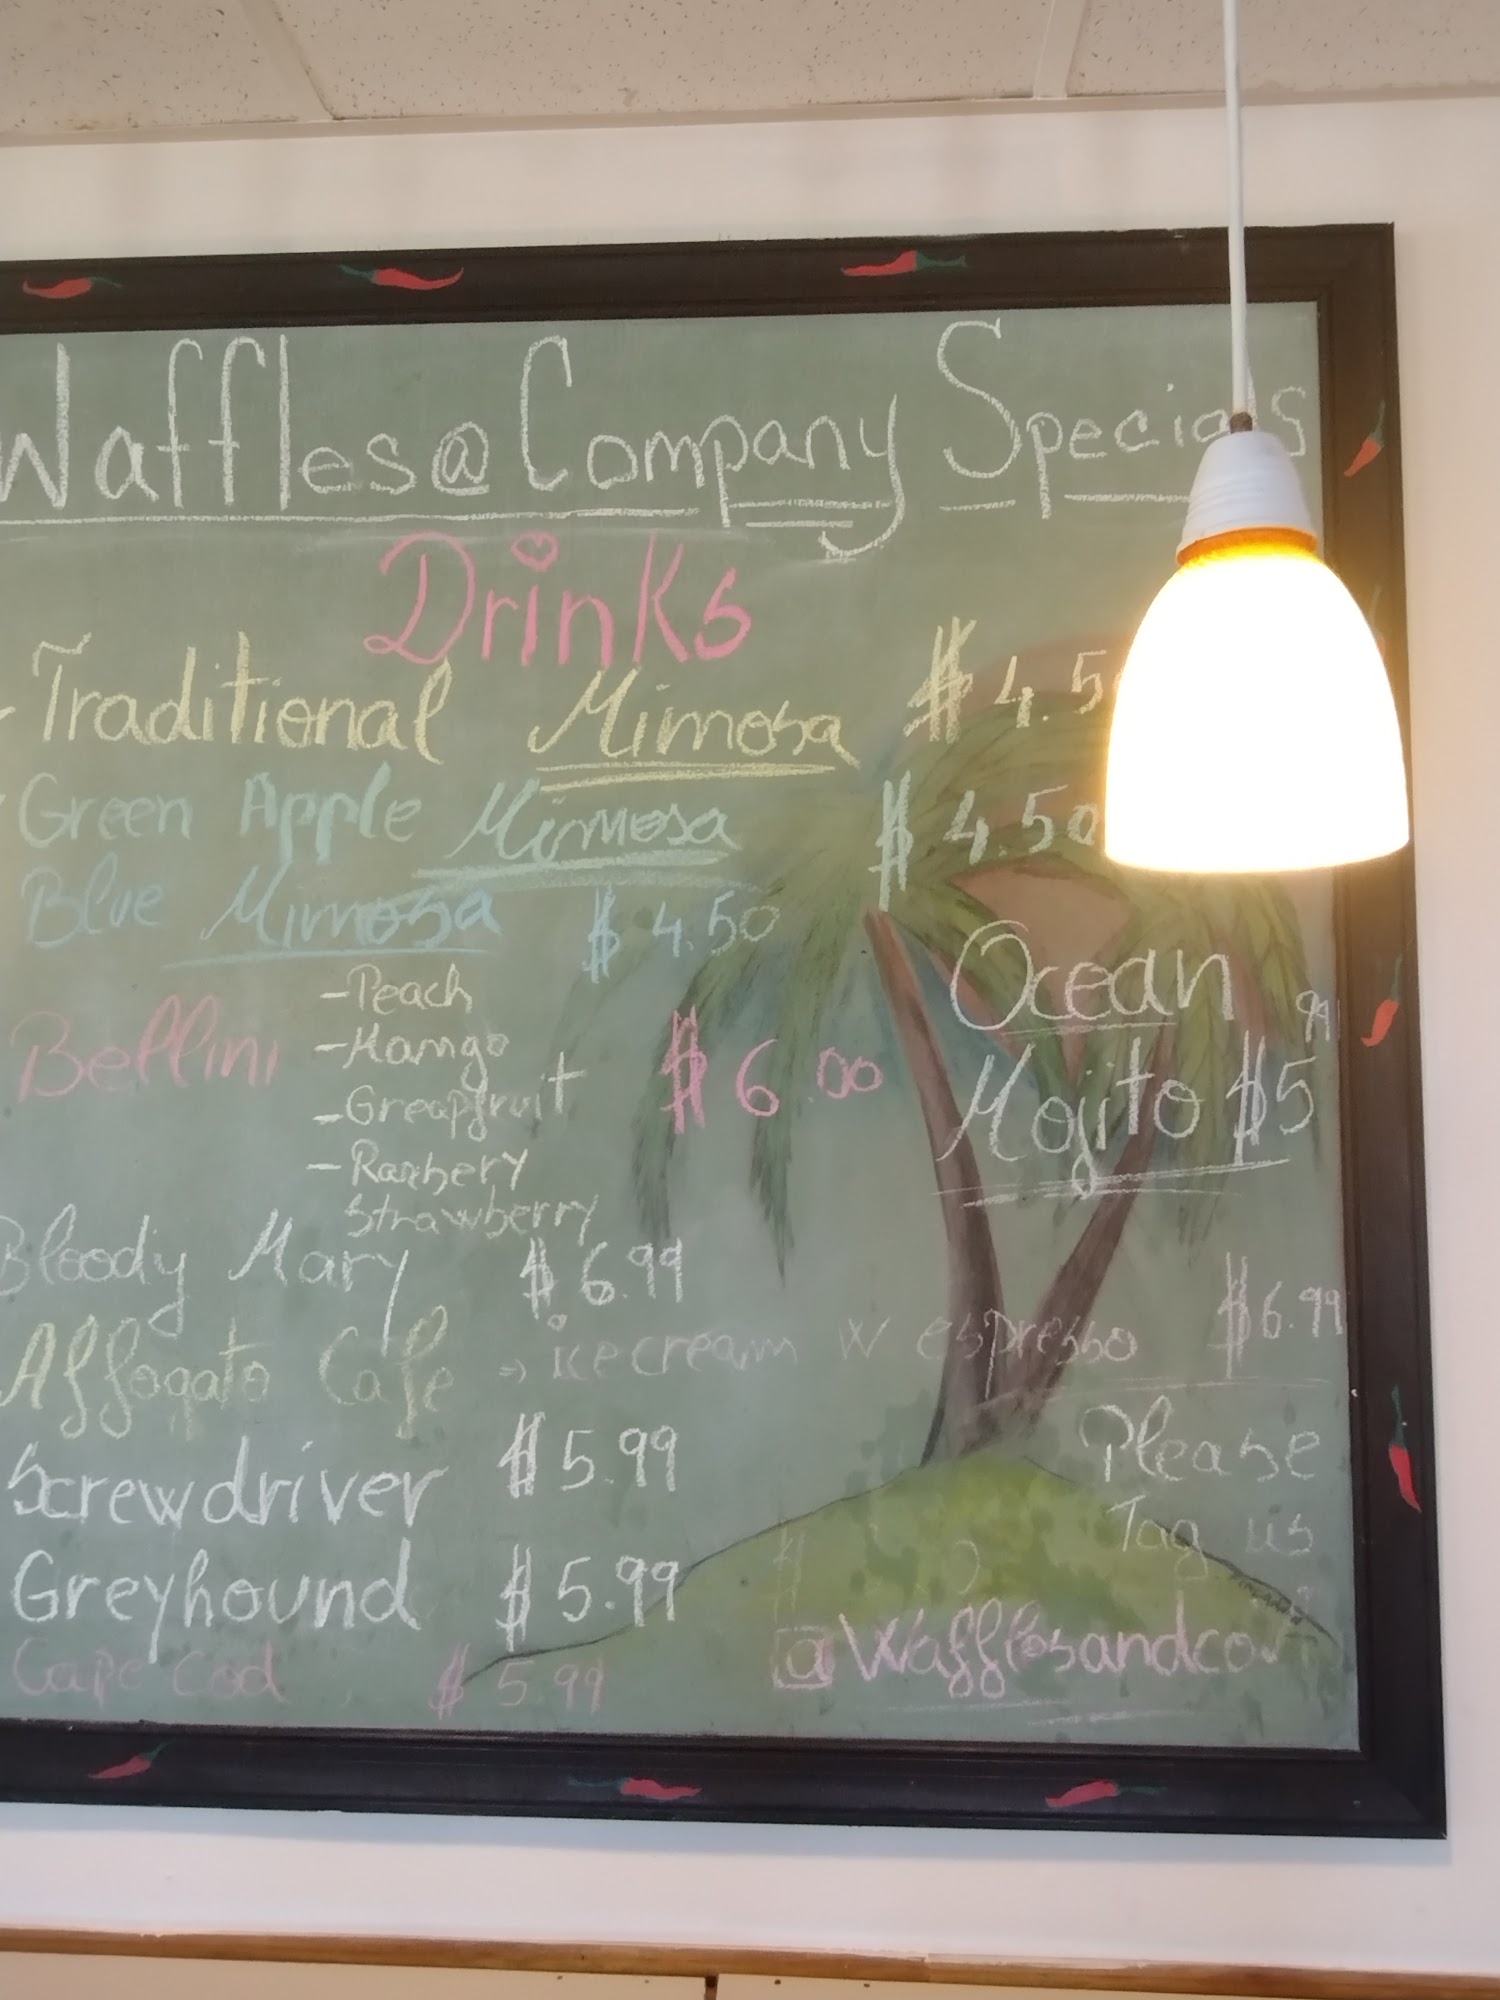 Waffles@Company Specials
Drinks
Traditional Mimosa $4.5
Green Apple Mimosa $4.50
Blue Mimosa $4.50
-Peach
Bellini -Mango $6.00
-Greapfruit
-Rasbery
Strawberry
Ocean
Mojito $5 99
Bloody Mary $6.99
Affogato Cafe => ice cream w espresso $6.99
Screwdriver $5.99
Greyhound $5.99
Cape Cod $5.99
Please
Tag us
@Wafflesandco